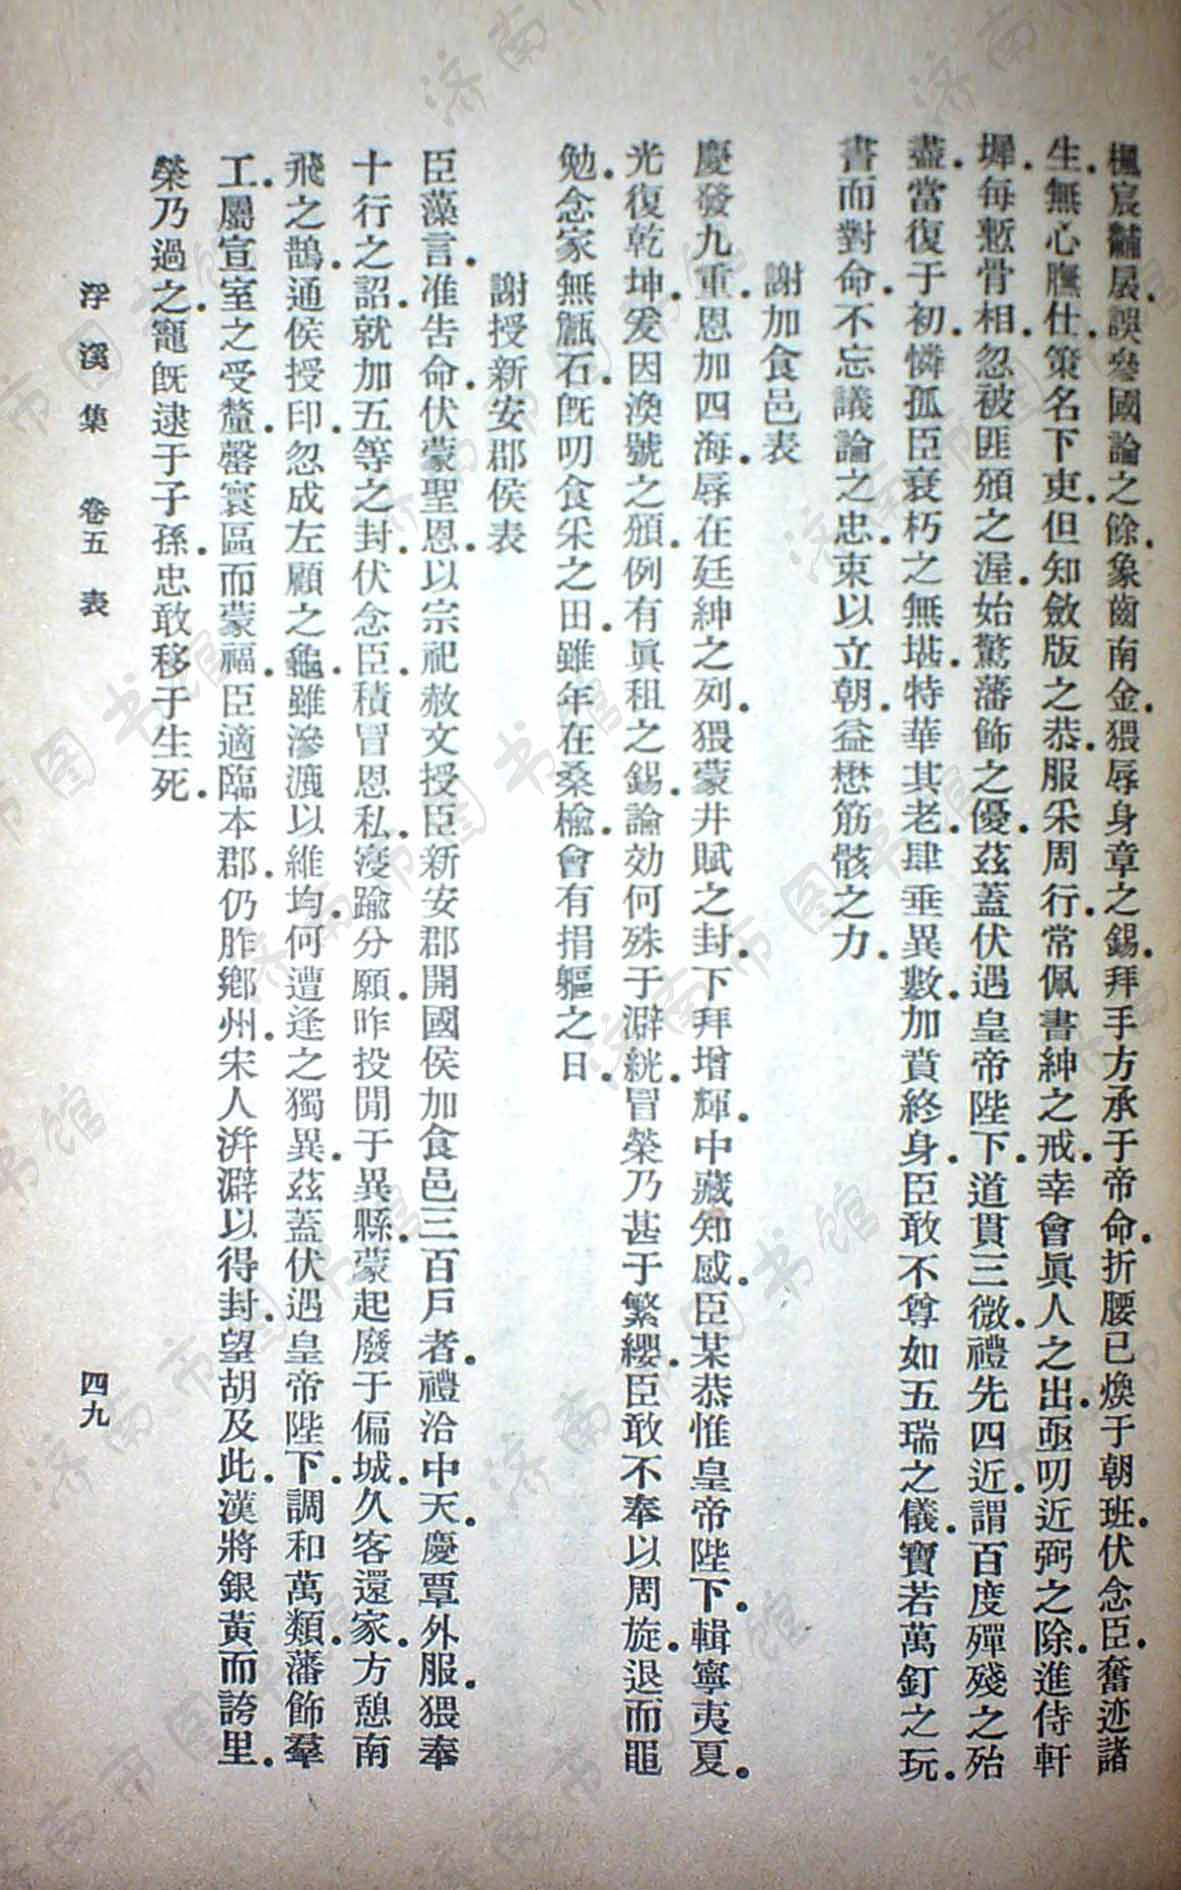 楓宸黼扆誤參國論之餘象齒南金猥辱身章之錫拜手方承于帝命折腰已煥于朝班伏念臣奮迹諸
生無心膴仕策名下吏但知斂版之恭服采周行常佩書紳之戒幸會眞人之出亟叨近弼之除進侍軒
墀每慙骨相忽被匪頒之渥始驚藩飾之優茲蓋伏遇皇帝陛下道貫三微禮先四近謂百度殫殘之殆
盡當復于初憐孤臣衰朽之無堪特華其老肆垂異數加賁終身臣敢不尊如五瑞之儀寶若萬釘之玩
書而對命不忘議論之忠束以立朝益懋筋骸之力
謝加食邑表
慶發九重恩加四海辱在廷紳之列猥蒙井賦之封下拜增輝中藏知感臣某恭惟皇帝陛下輯寧夷夏
光復乾坤爰因渙號之頒例有眞租之錫論効何殊于澼絖冒榮乃甚于繁纓臣敢不奉以周旋退而黽
勉念家無甔石旣叨食采之田雖年在桑楡會有捐軀之日
謝授新安郡侯表
臣藻言准告命伏蒙聖恩以宗祀赦文授臣新安郡開國侯加食邑三百戶者禮洽中天慶覃外服猥奉
十行之詔就加五等之封伏念臣積冒恩私寖踰分願昨投閒于異縣蒙起廢于偏城久客還家方憩南
飛之鵲通侯授印忽成左顧之龜雖滲漉以維均何遭逢之獨異茲蓋伏遇皇帝陛下調和萬類藩飾羣
工屬宣室之受釐罄寰區而蒙福臣適臨本郡仍胙鄉州宋人洴澼以得封望胡及此漢將銀黃而誇里
榮乃過之寵旣逮于子孫忠敢移于生死
浮溪集 卷五 表 四九
济南市图书馆